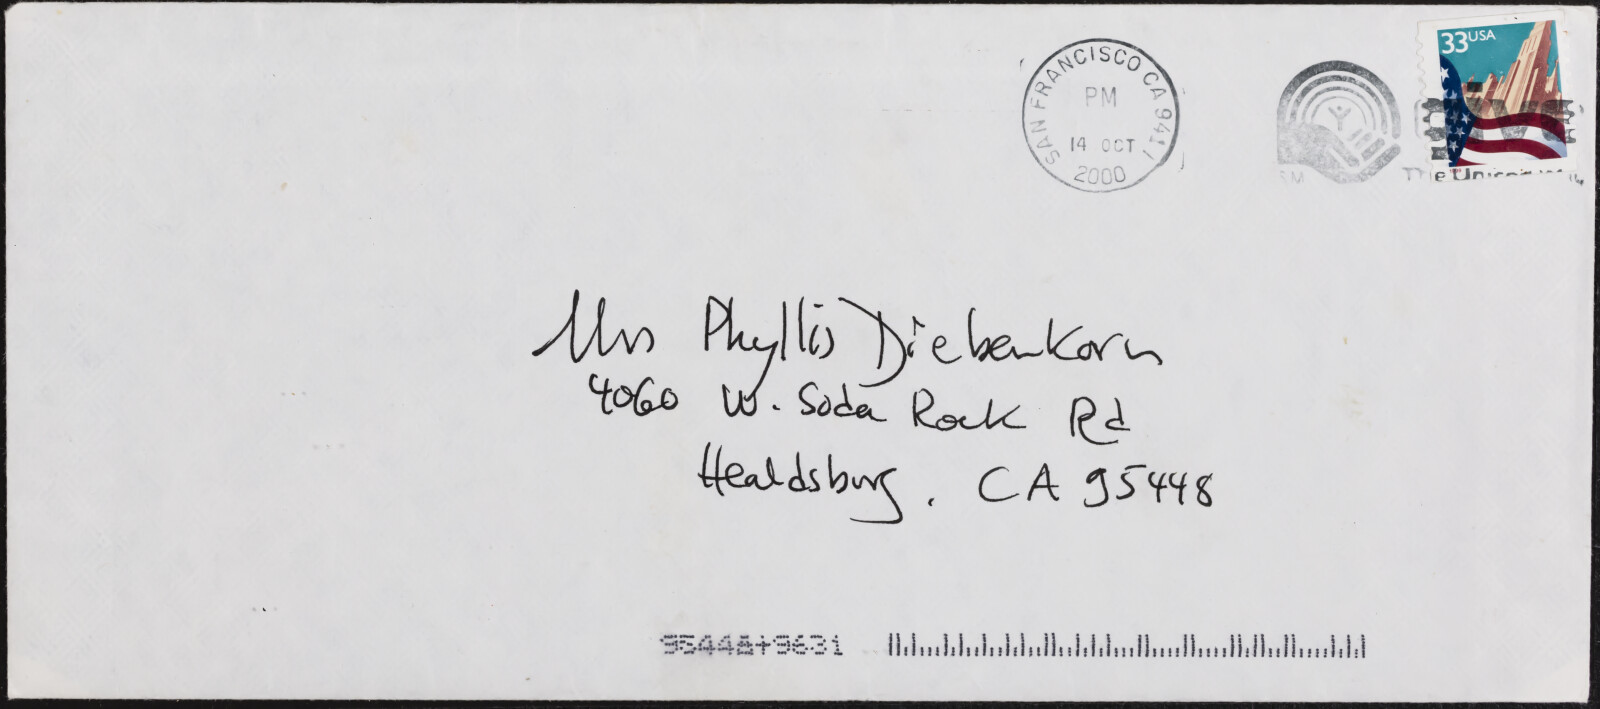 33USA
SAN FRANCISCO CA 941
PM
14 OCT
2000
SM
Give
The
Mrs Phyllis Diebenkorn
4060 W. Soda Rock Rd
Healdsburg, CA 95448
95448+9631